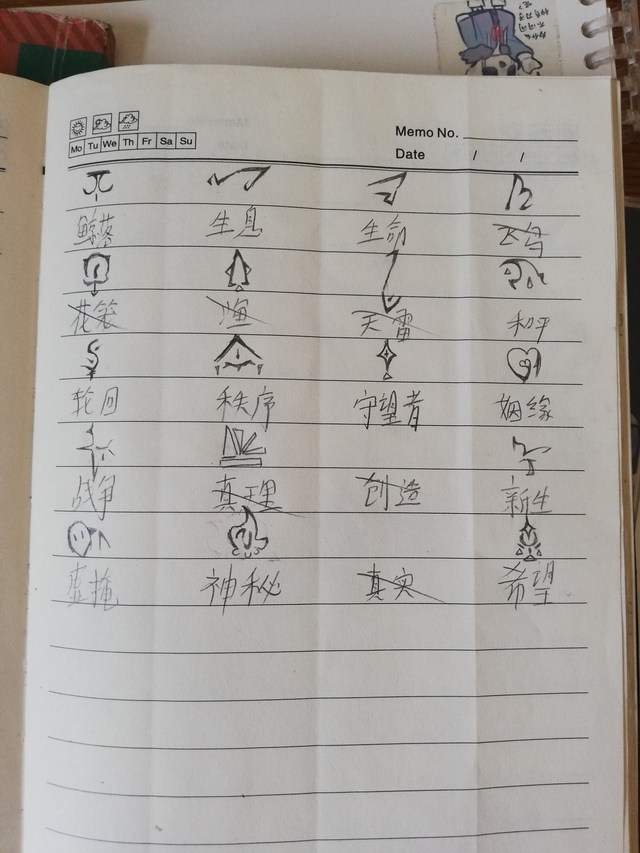 为什么
不问问
神奇
Memo No.
Mo Tu We Th Fr Sa Su
Date / /
鲸落 生息 生命 飞鸟
花笺 渔 天雷 和平
轮回 秩序 守望者 姻缘
战争 真理 创造 新生
虚掩 神秘 真实 希望